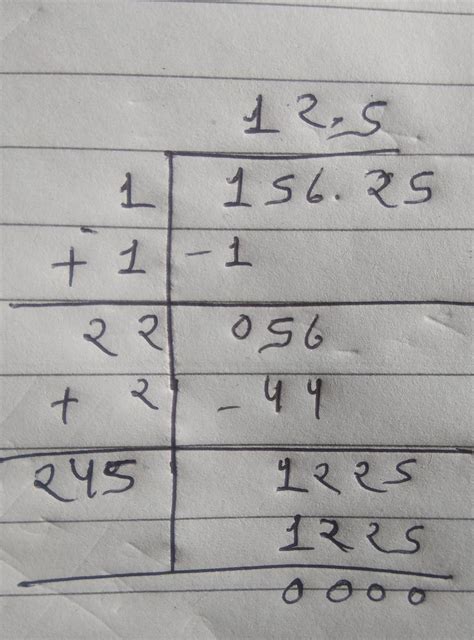 12.5
1 156.25
+ 1 - 1
22 056
+ 2 - 44
245 1225
1225
0000